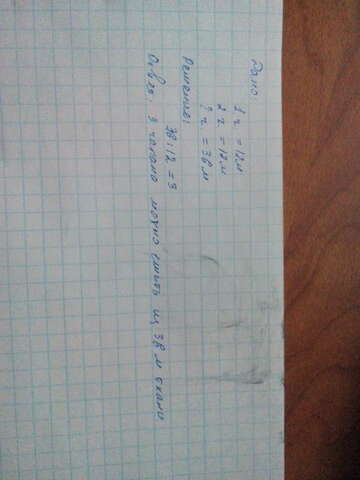 Дано
1 ч. = 12 м
2 ч. = 12 м
? ч. = 38 м
Решение:
38:12 = 3
Ответ: 3 чехлами можно сшить из 38 м ткани